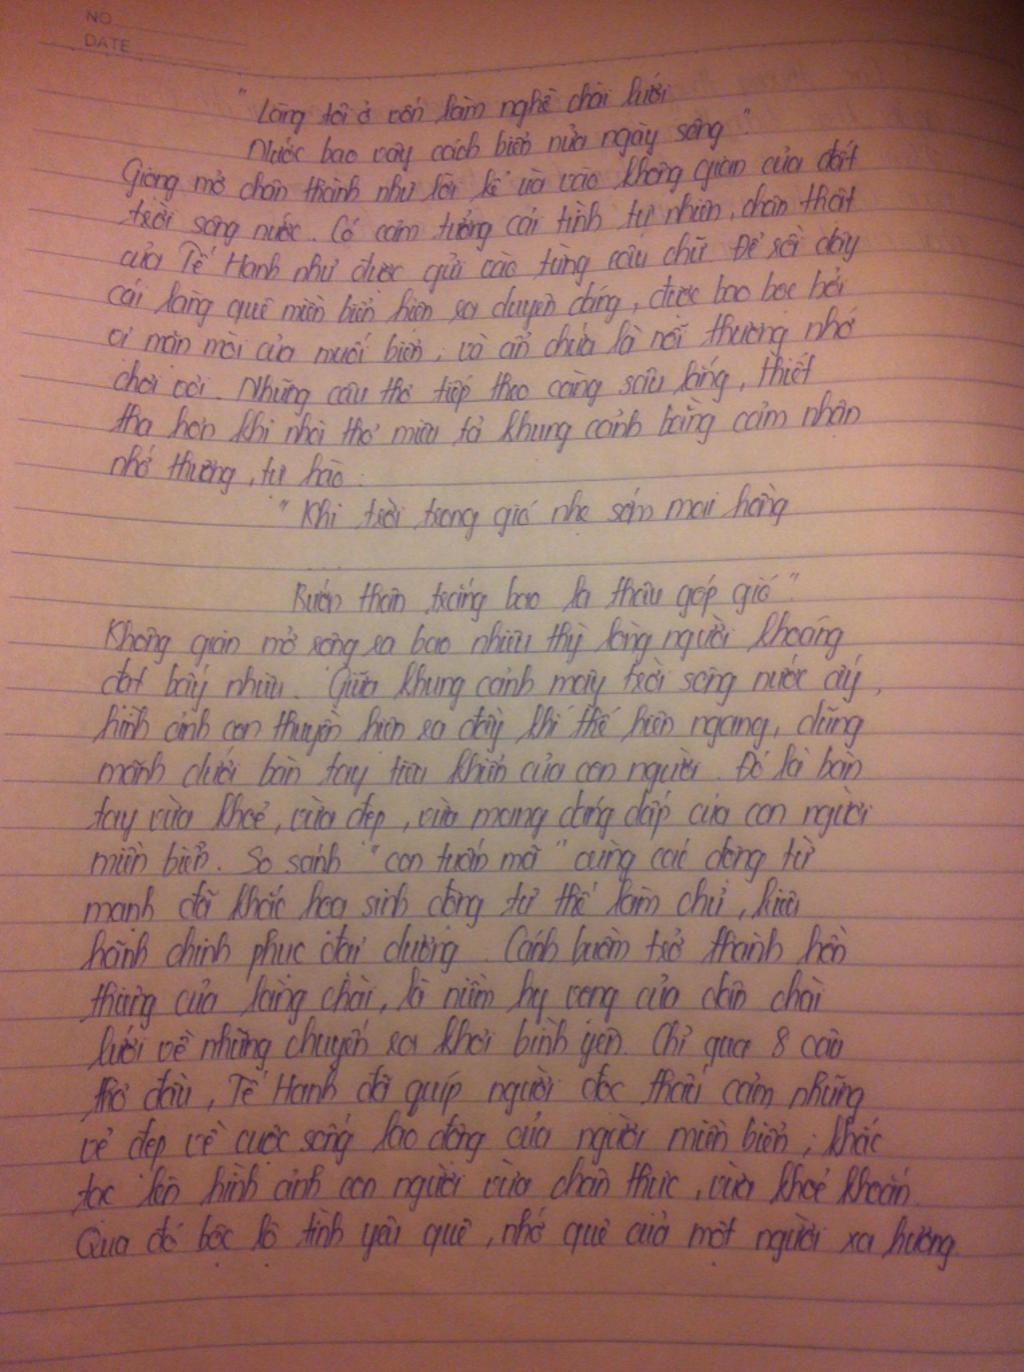 NO
DATE
"Làng tôi ở vốn làm nghề chài lưới
Nước bao vây cách biển nửa ngày sông".
Giọng mở chân thành như lời kể ùa vào không gian của đất
trời sông nước. Có cảm tưởng cái tình tự nhiên, chân thật
của Tế Hanh như được gửi vào từng câu chữ. Để rồi đây
cái làng quê miền biển hiện ra duyên dáng, được bao bọc bởi
vị mặn mòi của muối biển, và ẩn chứa là nỗi thương nhớ
chơi vơi. Những câu thơ tiếp theo càng sâu lắng, thiết
tha hơn khi nhà thơ miêu tả khung cảnh bằng cảm nhận
nhớ thương, tự hào.
"Khi trời trong gió nhẹ sớm mai hồng
Rướn thân trắng bao la thâu góp gió".
Không gian mở rộng ra bao nhiêu thì lòng người khoáng
đạt bấy nhiêu. Giữa khung cảnh mây trời sông nước ấy,
hình ảnh con thuyền hiện ra đầy khí thế hiên ngang, dũng
mãnh dưới bàn tay điều khiển của con người. Đó là bàn
tay vừa khoẻ, vừa đẹp, vừa mang dáng dấp của con người
miền biển. So sánh "con tuấn mã" cùng các động từ
mạnh đã khắc hoạ sinh động tư thế làm chủ, kiêu
hãnh chinh phục đại dương. Cánh buồm trở thành hồn
thiêng của làng chài, là niềm hy vọng của dân chài
lưới về những chuyến ra khơi bình yên. Chỉ qua 8 câu
thơ đầu, Tế Hanh đã quíp người đọc thấu cảm những
vẻ đẹp về cuộc sống lao động của người miền biển; khắc
tạc lên hình ảnh con người vừa chân thực, vừa khoẻ khoắn.
Qua đó bộc lộ tình yêu quê, nhớ quê của một người xa hương.